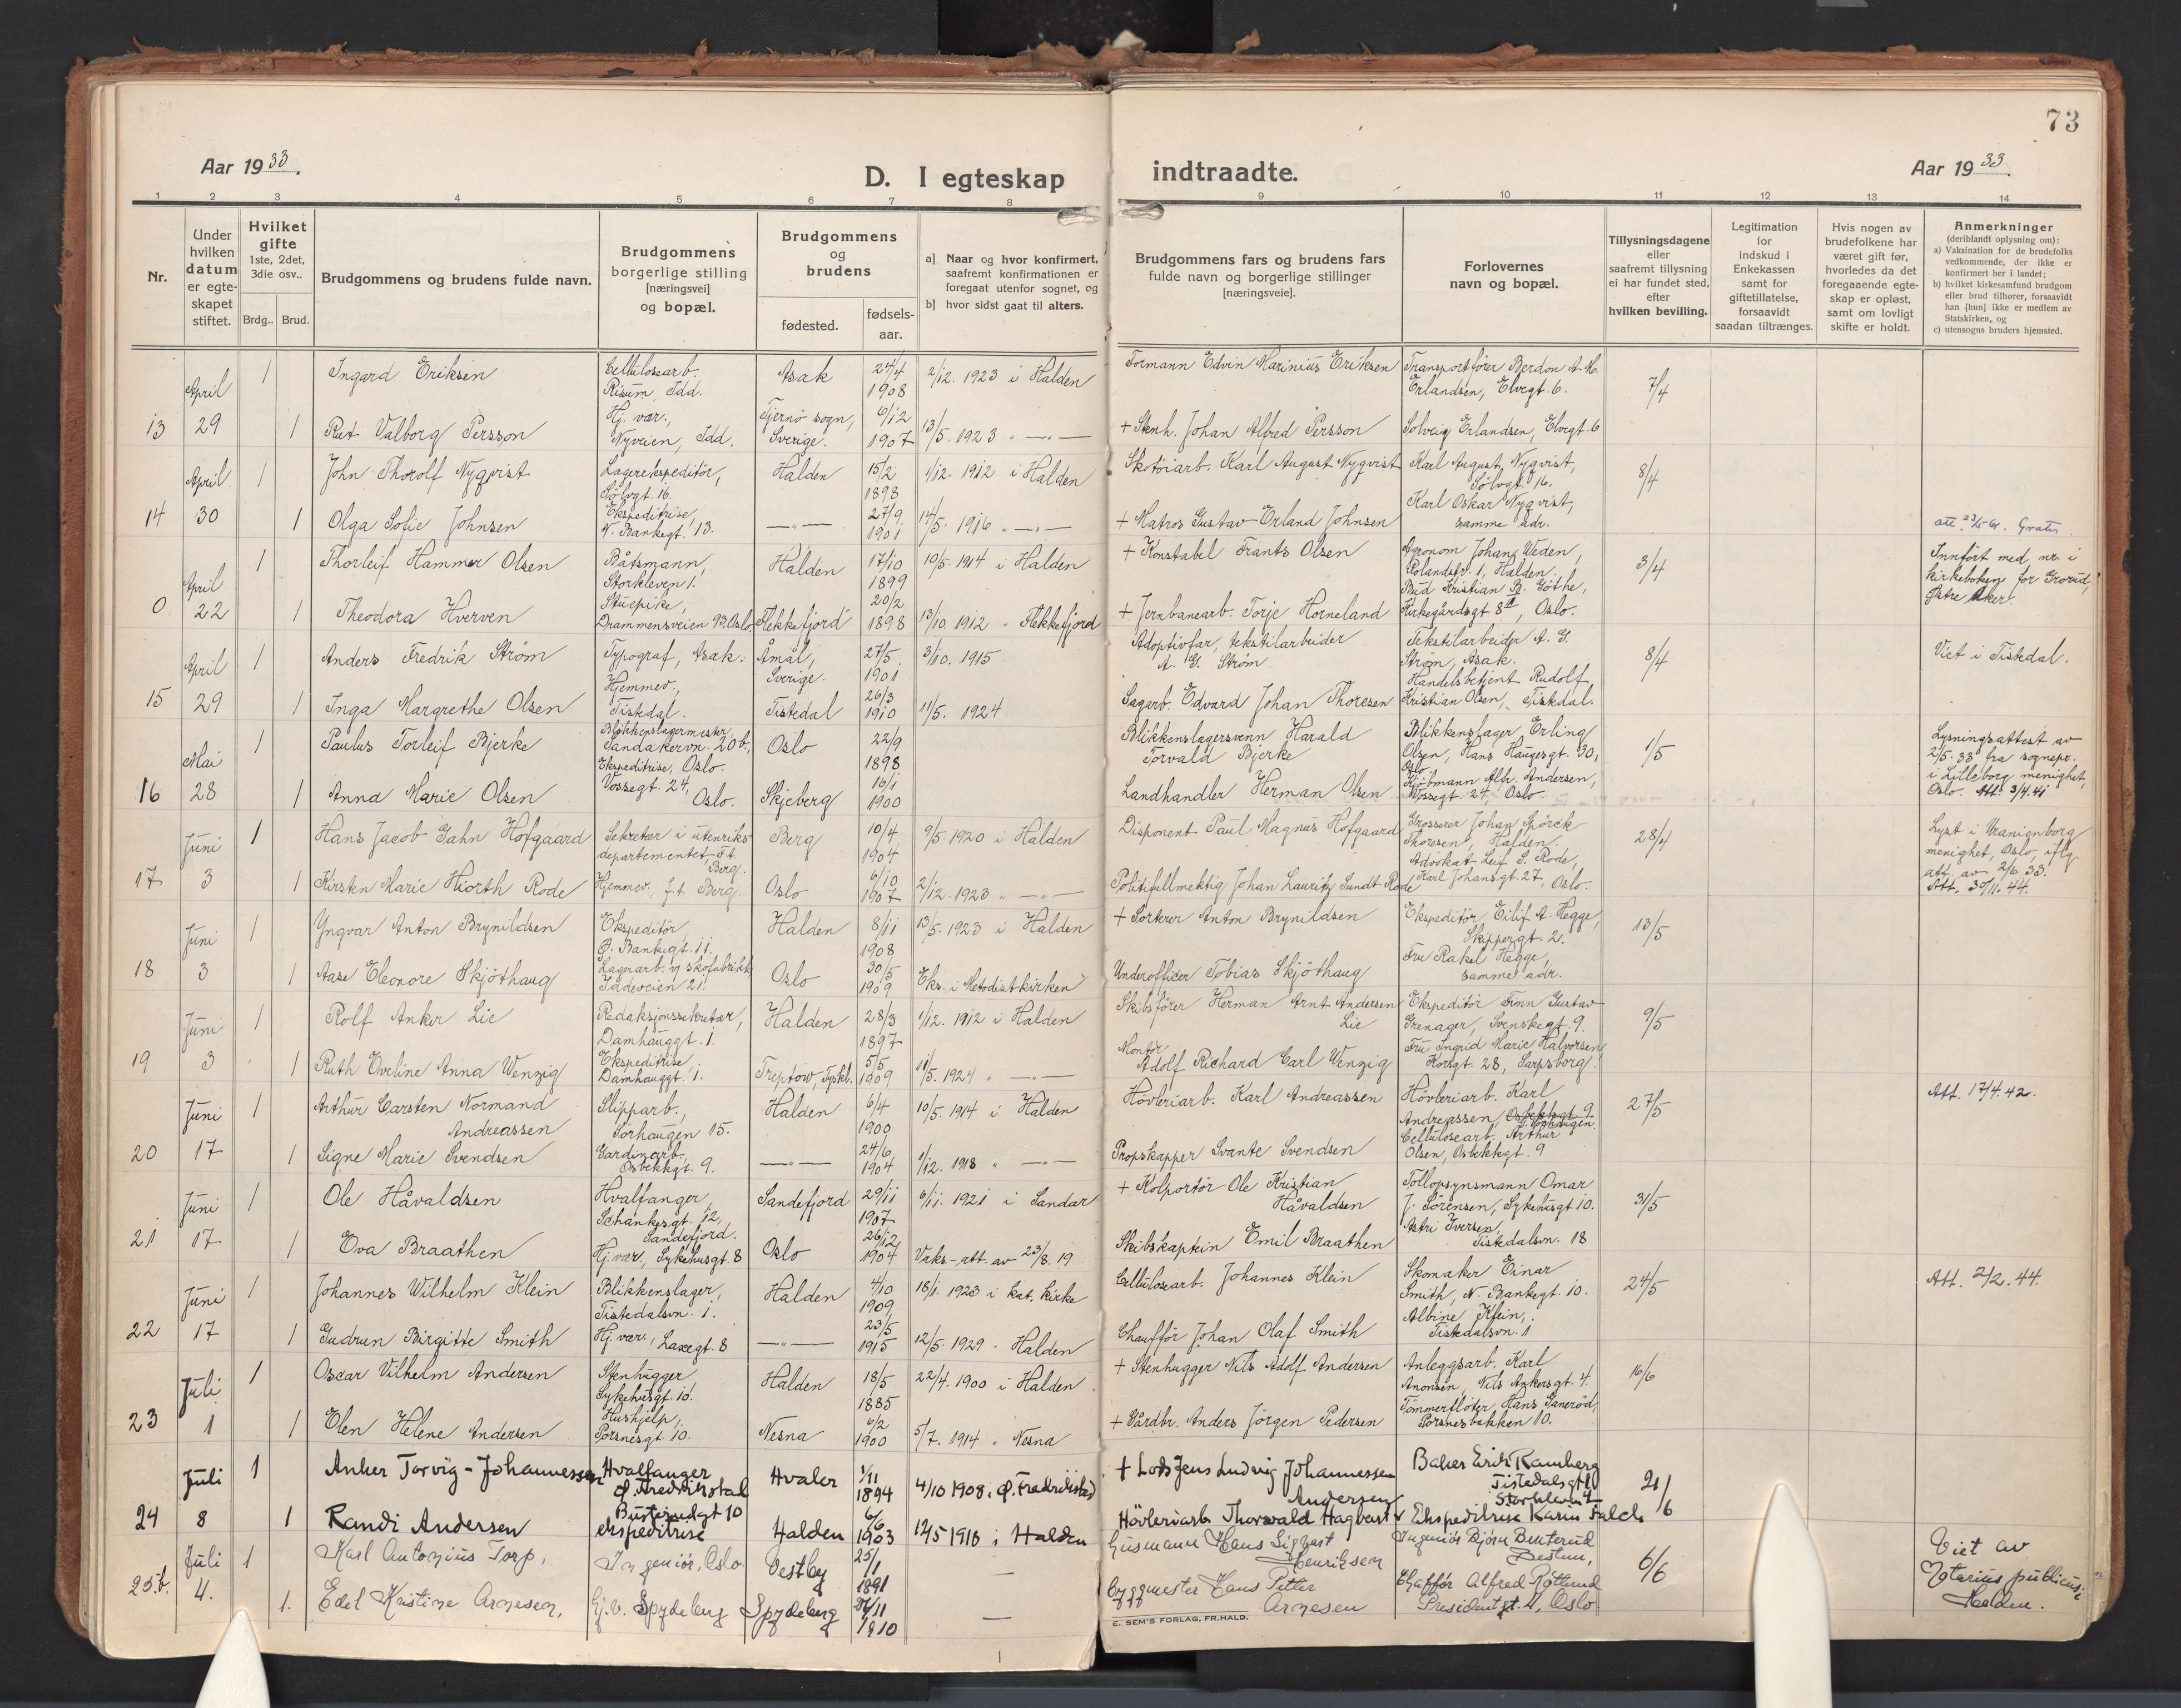 73
Aar 1933.
D. I egteskap
indtraadte.
Aar 1933.
1 2 3 4 5 6 7 8 9 10 11 12 13 14
Nr.
Under hvilken datum er egteskapet stiftet.
Hvilket gifte 1ste, 2det, 3die osv..
Brdg.. Brud.
Brudgommens og brudens fulde navn.
Brudgommens borgerlige stilling [næringsvei] og bopæl.
Brudgommens og brudens
fødested.
fødselsaar.
a] Naar og hvor konfirmert, saafremt konfirmationen er foregaat utenfor sognet, og
b] hvor sidst gaat til alters.
Brudgommens fars og brudens fars fulde navn og borgerlige stillinger [næringsveie].
Forlovernes navn og bopæl.
Tillysningsdagene eller saafremt tillysning ei har fundet sted, efter hvilken bevilling.
Legitimation for indskud i Enkekassen samt for giftetillatelse, forsaavidt saadan tiltrænges.
Hvis nogen av brudefolkene har været gift før, hvorledes da det foregaaende egteskap er opløst, samt om lovligt skifte er holdt.
Anmerkninger
(deriblandt oplysning om):
a) Vaksination for de brudefolks vedkommende, der ikke er konfirmert her i landet;
b) hvilket kirkesamfund brudgom eller brud tilhører, forsaavidt han [hun] ikke er medlem av Statskirken, og
c) utensogns bruders hjemsted.
April 1 Ingard Eriksen Cellulosearb. Risum, Idd. Asak 24/4 1908 2/12. 1923 i Halden Formann Edvin Marinius Eriksen Transportfører Berdon A. M. Erlandsen, Elvegt. 6. 7/4
13 29 1 Rut Valborg Persson Hj. vær., Nyveien, Idd. Tjernö sogn, Sverige. 6/12 1907 13/5. 1923 " —"— + Stenh. Johan Alfred Persson Solveig Erlandsen, Elvegt. 6
April 1 John Thorolf Nyqvist Lagerekspeditör, Sölvgt. 16. Halden 15/2 1898 1/12. 1912 i Halden Skotöiarb. Karl August Nyqvist Karl August Nyqvist, Sölvgt. 16. 8/4
14 30 1 Olga Sofie Johnsen Ekspeditrise, N. Bankegt. 13. —"— 27/9 1901 14/5. 1916 " —"— + Matros Gustav Erland Johnsen Karl Oskar Nyqvist, samme adr.
April 1 Thorleif Hammer Olsen Båtsmann, Storkleven 1. Halden 17/10 1899 10/5. 1914 i Halden + Konstabel Frants Olsen Agronom Johan Weden, Rolandsv. 1, Halden. 3/4 Innført med nr. i kirkeboken for Grorud, Østre Aker.
0 22 1 Theodora Hverven Stuepike, Drammensveien 93, Oslo Flekkefjord 20/2 1898 13/10. 1912 " Flekkefjord + Jernbanearb. Torje Horneland Bud Kristian B. Göthe, Kirkegårdsgt 8, Oslo.
April 1 Anders Fredrik Strøm Typograf, Asak. Åmål, Sverige. 27/5 1901 3/10. 1915 Adoptivfar, tekstilarbeider A. G. Strøm Tekstilarbeider A. G. Strøm, Asak. 8/4 Viet i Tistedal.
15 29 1 Inga Margrethe Olsen Hjemmev., Tistedal. Tistedal 26/3 1910 11/5. 1924 Sagarb. Edvard Johan Thoresen Handelsbetjent Rudolf Kristian Olsen, Tistedal.
Mai 1 Paulus Torleif Bjerke Blikkenslagermester, Sandakervn. 20 b, Oslo. Oslo 22/9 1898 Blikkenslagersvenn Harald Torvald Bjerke Blikkenslager Erling Olsen, Hans Haugesgt. 30, Oslo. 1/5 Lysningsattest av 2/5. 33 fra sognepr. i Lilleborg menighet, Oslo. Att. 3/4.41
16 28 1 Anna Marie Olsen Ekspeditrise, Vossegt. 24, Oslo. Skjeberg 16/1 1900 Landhandler Herman Olsen Kjøbmann Alb. Andersen, Vossegt. 24, Oslo.
Juni 1 Hans Jacob Gahn Hofgaard Sekretær i utenriksdepartementet, f.t. Berg. Berg 10/4 1904 9/5. 1920 i Halden Disponent Paul Magnus Hofgaard Grosserer Johan Spörck Thoresen, Halden. 28/4 Lyst i Uranienborg menighet, Oslo, iflg. att. av 2/6 33. Att. 30/11. 44.
17 3 1 Kirsten Marie Hiorth Rode Hjemmev., f.t. Berg. Oslo 6/10 1907 2/12. 1923 " —"— Politifullmektig Johan Lauritz Sundt Rode Advokat Leif S. Rode, Karl Johansgt. 27, Oslo.
Juni 1 Yngvar Anton Brynildsen Ekspeditör, Ø. Bankegt. 11. Halden 8/11 1908 13/5. 1923 i Halden + Sorterer Anton Brynildsen Ekspeditör Eilif A. Hegge, Skippergt. 2. 13/5
18 3 1 Aase Eleonore Skjöthaug Lagerarb. v/ skofabrikk Iddeveien 21. Oslo 30/5 1909 Eks. i Metodistkirken Underofficer Tobias Skjöthaug Fru Rakel Hegge, samme adr.
Juni 1 Rolf Anker Lie Redaksjonssekretær, Damhauggt. 1. Halden 28/3 1897 1/12. 1912 i Halden Skibsfører Herman Arnt Andersen Lie Ekspeditör Finn Gustav Grenager, Svenskegt. 9. 9/5
19 3 1 Ruth Eveline Anna Wenzig Ekspeditrise, Damhauggt. 1. Treptow, Tyskl. 5/5 1909 11/5. 1924 " —"— Montør Adolf Richard Carl Wenzig Fru Ingrid Marie Halvorsen, Korsgt. 28, Sarpsborg.
Juni 1 Arthur Carsten Normand Andreassen Slipparb., Torhaugen 15. Halden 6/4 1900 10/5. 1914 i Halden Høvleriarb. Karl Andreassen Høvleriarb. Karl Andreassen, Osbekkgt. 9. Torhaugen. 27/5 Att. 17/4. 42.
20 17 1 Signe Marie Svendsen Gardinarb., Osbekkgt. 9. —"— 24/6 1904 1/12. 1918 " —"— Propskapper Svante Svendsen Cellulosearb. Arthur Olsen, Osbekkgt. 9
Juni 1 Ole Håvaldsen Hvalfanger, Schankesgt. 12, Sandefjord. Sandefjord 29/11 1907 6/11. 1921 i Sandar + Kolportör Ole Kristian Håvaldsen Tollopsynsmann Omar J. Sörensen, Sykehusgt 10. 31/5
21 17 1 Eva Braathen Hj. vær., Sykehusgt. 8 Oslo 26/12 1904 Vaks.-att. av 23/8. 19 Skibskaptein Emil Braathen Astri Iversen, Tistedalsvn. 18
Juni 1 Johannes Wilhelm Klein Blikkenslager, Tistedalsvn. 1. Halden 4/10 1909 18/1. 1923 i kat. kirke Cellulosearb. Johannes Klein Skomaker Einar Smith, N. Bankegt. 10. 24/5 Att. 2/2. 44.
22 17 1 Gudrun Birgitte Smith Hj. vær., Laxegt. 8 —"— 23/5 1915 12/5. 1929 " Halden Chauffør Johan Olaf Smith Albine Klein, Tistedalsvn. 1
Juli 1 Oscar Vilhelm Andersen Stenhugger, Sykehusgt. 10. Halden 18/5 1885 22/4. 1900 i Halden + Stenhugger Nils Adolf Andersen Anleggsarb. Karl Anonsen, Nils Ankersgt. 4. 16/6
23 1 1 Elen Helene Andersen Hushjelp, Porsnesgt. 10. Nesna 6/2 1900 5/7. 1914 " Nesna + Gårdbr. Anders Jörgen Pedersen Tømmerfløter Hans Ganerød, Porsnesbakken 10.
Juli 1 Anker Torvig-Johannessen Hvalfanger Ø. Fredrikstad Hvaler 1/11 1894 4/10 1908 i Ø. Fredrikstad + Lods Jens Ludvig Johannessen Baker Erik Ramberg Tistedalsgt 1 21/6
24 8 1 Randi Andersen Busterudgt 10 ekspeditrise Halden 6/6 1903 12/5 1918 i Halden Høvleriarb. Thorwald Hagbart Andersen Ekspeditrise Karin Falch Storkleven 4
Juli 1 Karl Antonius Torp, Ingeniör, Oslo. Vestby 25/1 1891 — Husmann Hans Sigvart Henriksen Ingeniör Bjørn Buuterud Bestum, 6/6 Viet av Notarius publicus i Halden.
25.b. 4. 1. Edel Kristine Arnesen, Hj. v. Spydeberg Spydeberg 24/11 1910 — Byggmester Hans Petter Arnesen Chaffør Alfred Røtlund Presidentgt. 4, Oslo
E. SEM'S FORLAG, FR.HALD.